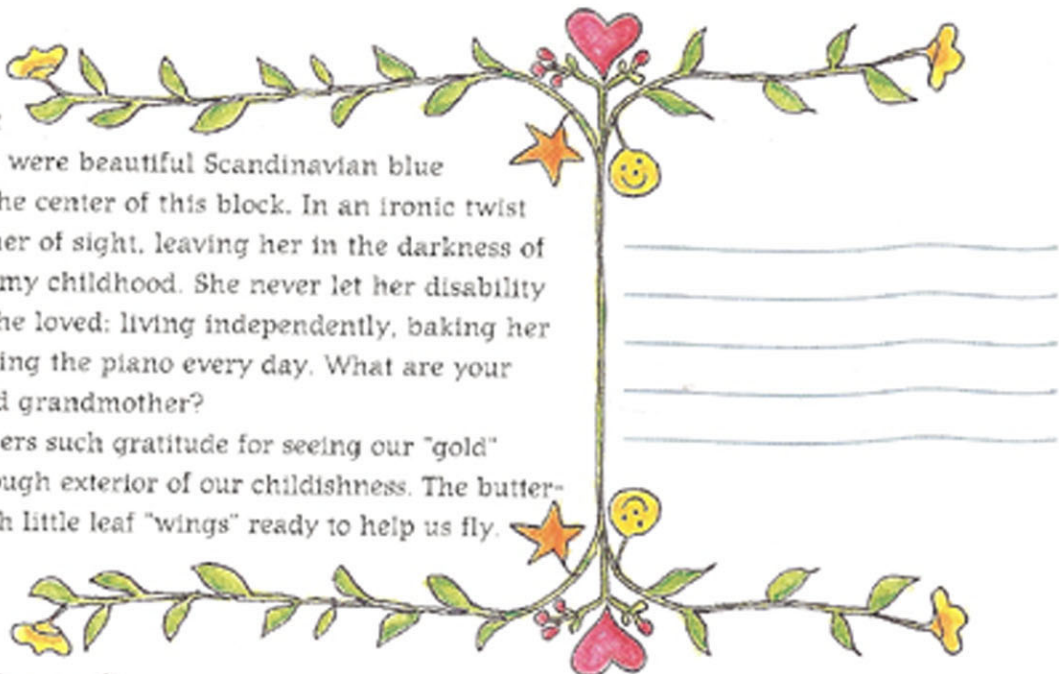 were beautiful Scandinavian blue
he center of this block. In an ironic twist
er of sight, leaving her in the darkness of
my childhood. She never let her disability
he loved: living independently, baking her
ing the piano every day. What are your
d grandmother?
ers such gratitude for seeing our "gold"
ugh exterior of our childishness. The butter-
h little leaf "wings" ready to help us fly.